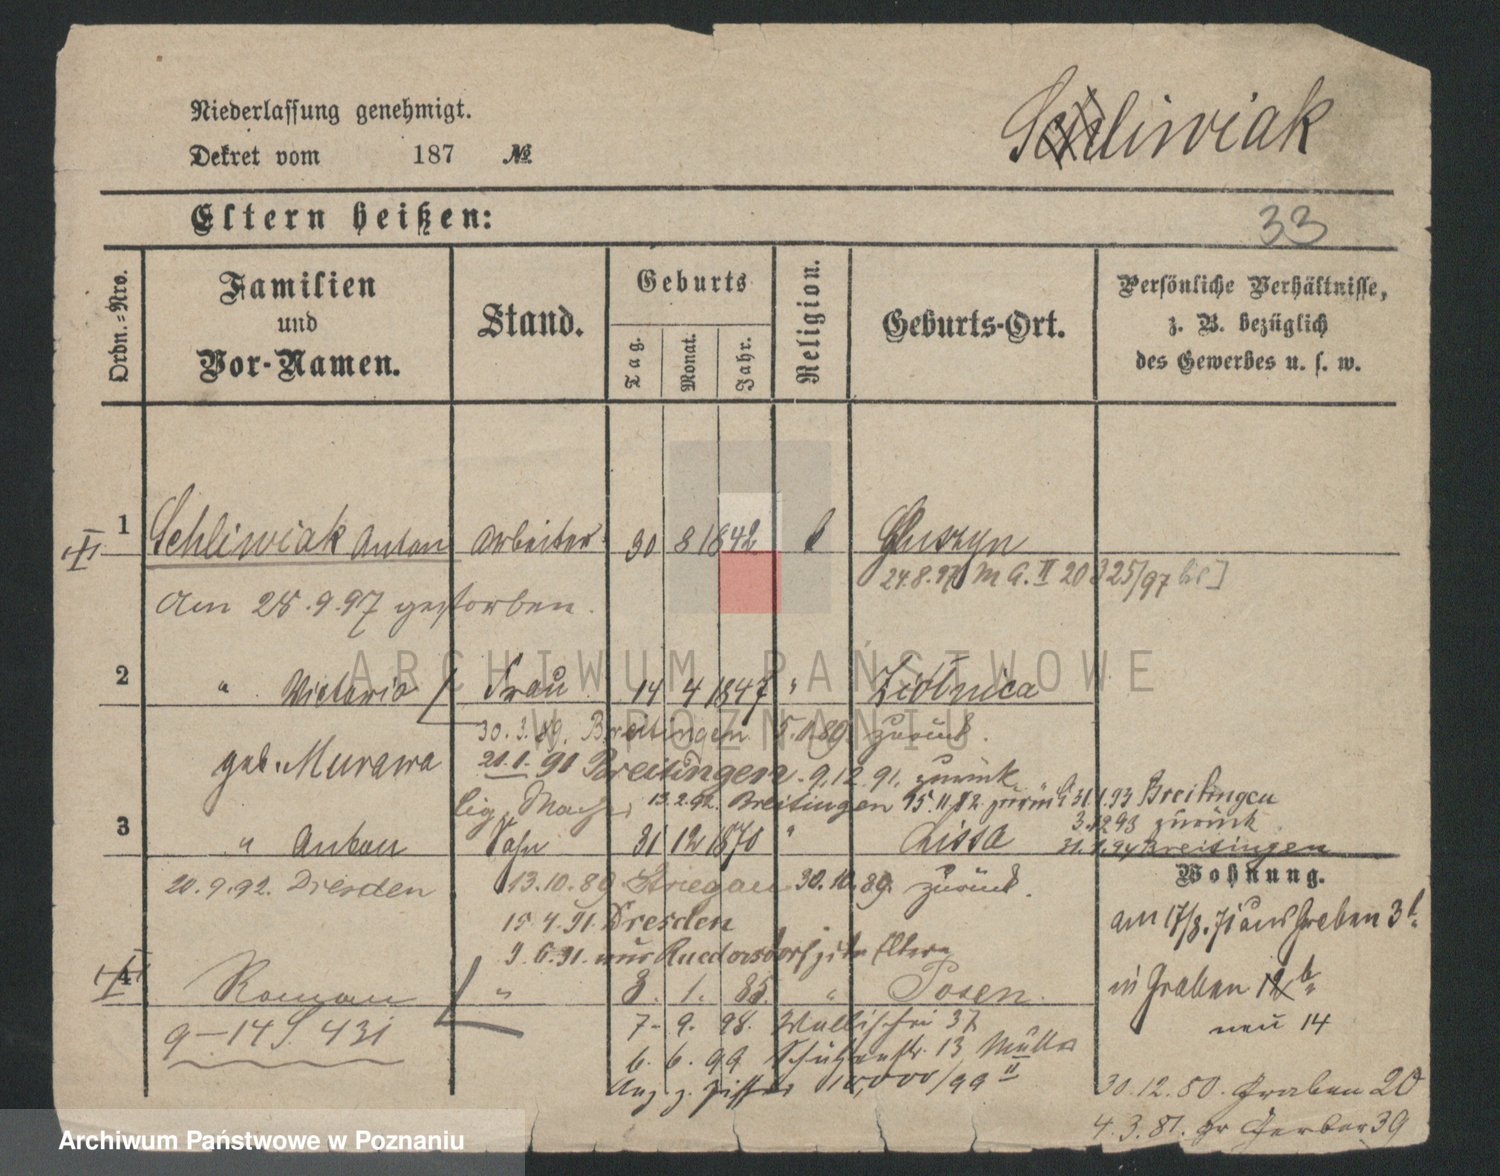 Niederlassung genehmigt.
Dekret vom 187 №
Schliwiak
Eltern heißen:
33
Ordn.-Nro.
Familien
und
Vor-Namen.
Stand.
Geburts
Tag.
Monat.
Jahr.
Religion.
Geburts-Ort.
Persönliche Verhältnisse,
z. B. bezüglich
des Gewerbes u. s. w.
1 Schliwiak Anton Arbeiter 30 8 1842
24.8.97 M G. II 20 325/97
Am 28.9.97 gestorben.
2 " Victoria Frau 14 4 1847 "
30.3.89. Breitingen 5.1.89. zurück.
geb. Murawa 21.1.91 Breitingen. 9.12.91. zurück
13.2.92. Breitingen 15.11.92. zurück 31.1.93 Breitingen
3.12.93 zurück
3 " Anton Sohn 31 12 1870 " Lissa 31.1.94 Breitingen
Wohnung.
20.9.92. Dresden 13.10.89 Striegau 30.10.89. zurück.
am 17/8. 71 aus Graben 3b.
15.4.91. Dresden
9.6.91. aus Ruedersdorf z. d. Eltern
4 Roman " 8. 1. 85 " Posen.
in Graben 12b.
neu 14
9-14 S 431
7. 9. 98. Wallischei 37
6. 6. 99 Schützenstr. 13 Müller
Anz. z. Ziffer 10,000/99 II
30.12.80. Graben 20
4.3.81. gr Gerber 39
ARCHIWUM PAŃSTWOWE
W POZNANIU
Archiwum Państwowe w Poznaniu